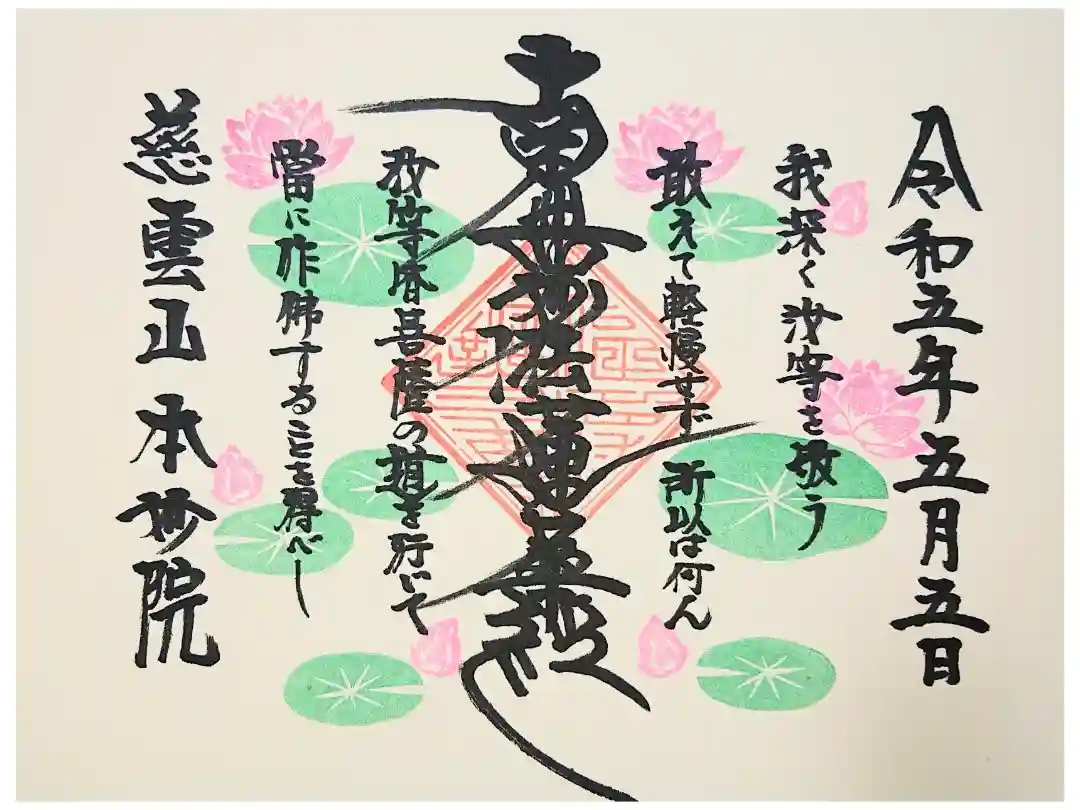 令和五年五月五日
我深く汝等を敬う
敢えて軽慢せず 所以は何ん
南無妙法蓮華経
我等皆菩薩の道を行いて
當に作佛することを得べし
慈雲山 本妙院